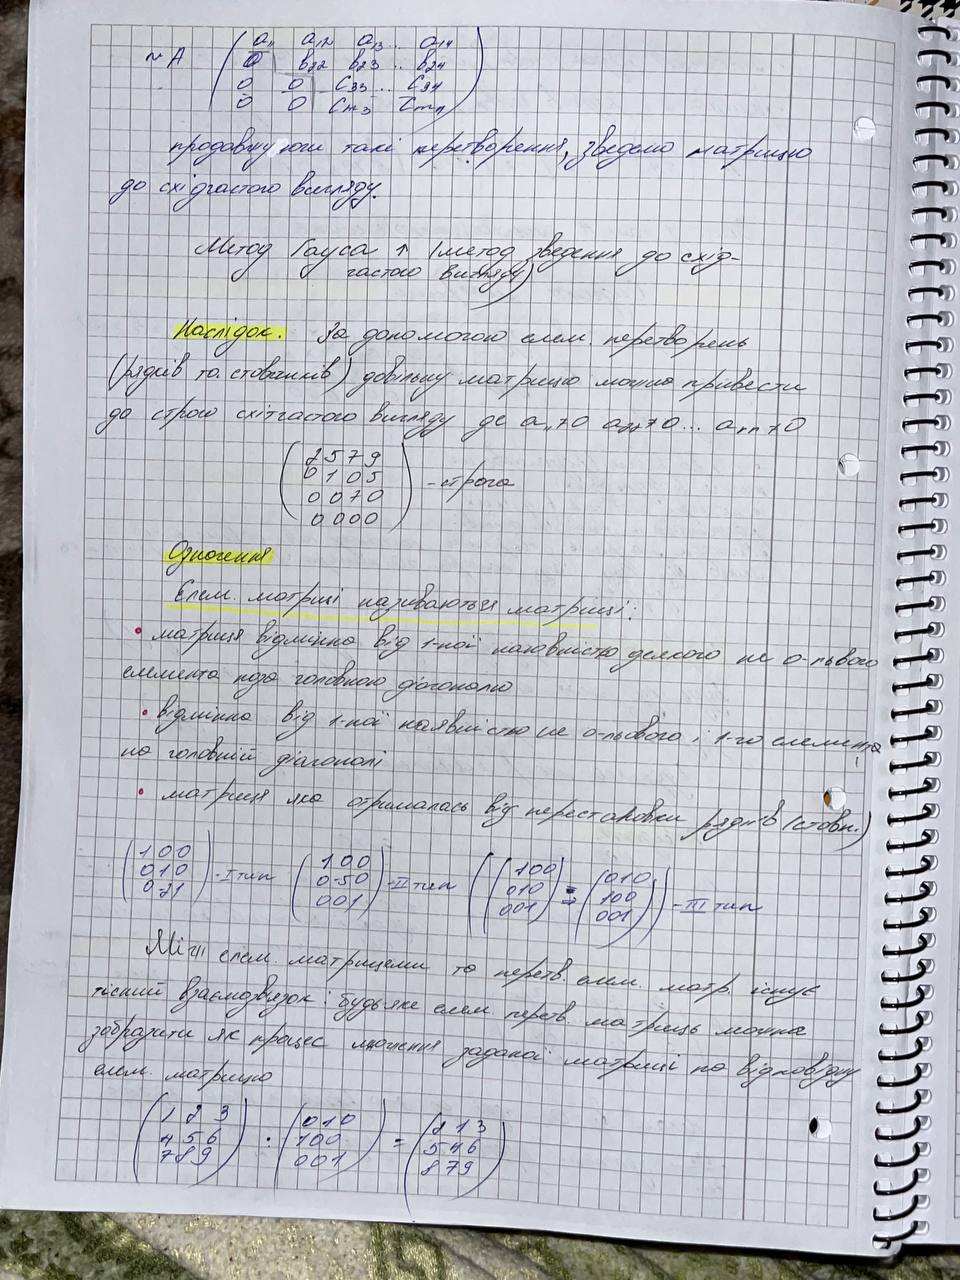 ~ A ( a₁₁ a₁₂ a₁₃ .. a₁₄
0 b₂₂ b₂₃ .. b₂₄
0 0 c₃₃ .. c₃₄
0 0 cm₃ cmn )
продовжуючи такі перетворення, зведемо матрицю
до східчастого вигляду.
Метод Гауса ↑ (метод зведення до схід-
частого вигляду)
Наслідок. За допомогою елем. перетворень
(рядків та стовпчиків) довільну матрицю можна привести
до строго східчастого вигляду де a₁₁≠0 a₂₂≠0 ... arr≠0
( 2 5 7 9
0 1 0 5
0 0 7 0
0 0 0 0 ) - строга
Означення
Елем. матриці називаються матриці:
• матриця відмінна від 1-ної наявністю деякого не 0-львого
елемента поза головною діагоналлю
• відмінна від 1-ної наявністю не 0-львого і 1-го елемента
на головній діагоналі
• матриця яка отрималась від перестановки рядків (стовп.)
( 1 0 0
0 1 0
0 21 ) - I тип ( 1 0 0
0 -5 0
0 0 1 ) - II тип ( ( 1 0 0
0 1 0
0 0 1 ) ⇒ ( 0 1 0
1 0 0
0 0 1 ) ) - III тип
Між елем. матрицями та перетв. елем. матр. існує
тісний взаємозвязок: будь-яке елем. перетв. матриць можна
зобразити як процес множення заданої матриці на відповідну
елем. матрицю
( 1 2 3
4 5 6
7 8 9 ) · ( 0 1 0
1 0 0
0 0 1 ) = ( 2 1 3
5 4 6
8 7 9 )